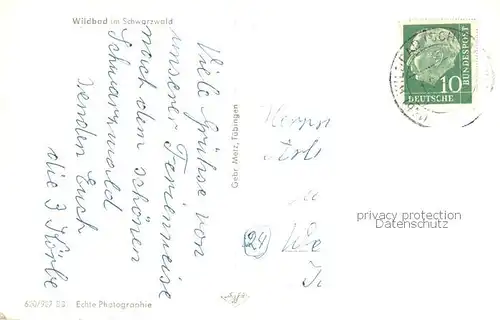 Wildbad im Schwarzwald
Viele Grühse von
unserer Ferienreise
nach dem schönen
Schwarzwald
senden Euch
die 3 Körbe
650/927 Echte Photographie
Gebr. Metz, Tübingen
10
DEUTSCHE
BUNDESPOST
Herrn
24
privacy protection
Datenschutz